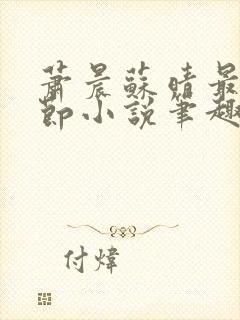 蕭晨蘇晴最
節小說筆趣
付煒